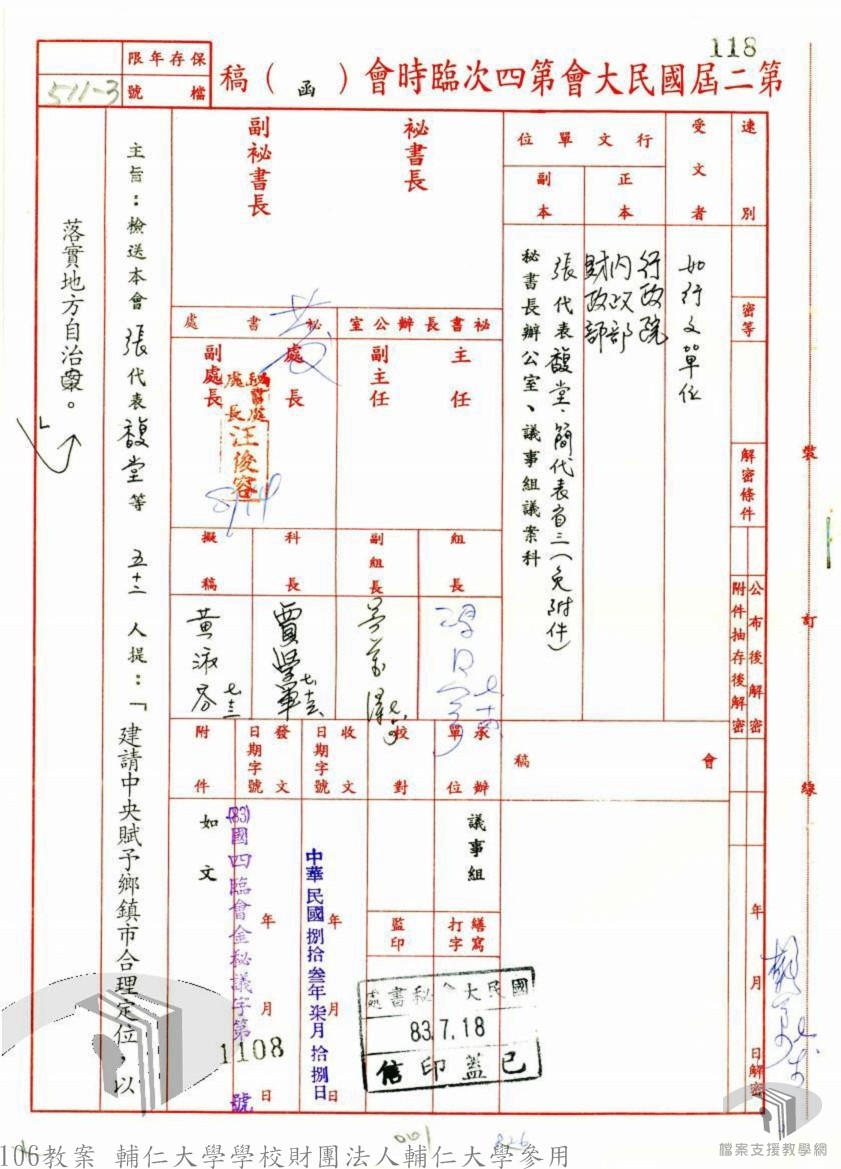 118
第二屆國民大會第四次臨時會（函）稿
保存年限
檔號
511-3
速別
密等
解密條件
公布後解密
附件抽存後解密
年 月 日解密
受文者
如行文單位
行文單位
正本
行政院
內政部
財政部
副本
張代表馥堂、簡代表省三（免附件）
秘書長辦公室、議事組議案科
會稿
祕書長
副祕書長
祕書長辦公室
主任
副主任
祕書處
處長
副處長
祕書處
處長
汪俊容
組長
副組長
科長
賈堅軍
擬稿
黃淑芬
承辦單位
議事組
校對
繕寫
打字
監印
收文日期字號
年 月 日
中華民國捌拾叁年柒月拾捌日
發文日期字號
年 月 日
(83)國四臨會金秘議字第
1108
號
附件
如文
國民大會秘書處
83.7.18
已蓋印信
主旨：檢送本會張代表馥堂等 五十二 人提：「建請中央賦予鄉鎮市合理定位，以
落實地方自治案。
裝
訂
線
001
826
106教案 輔仁大學學校財團法人輔仁大學參用
檔案支援教學網